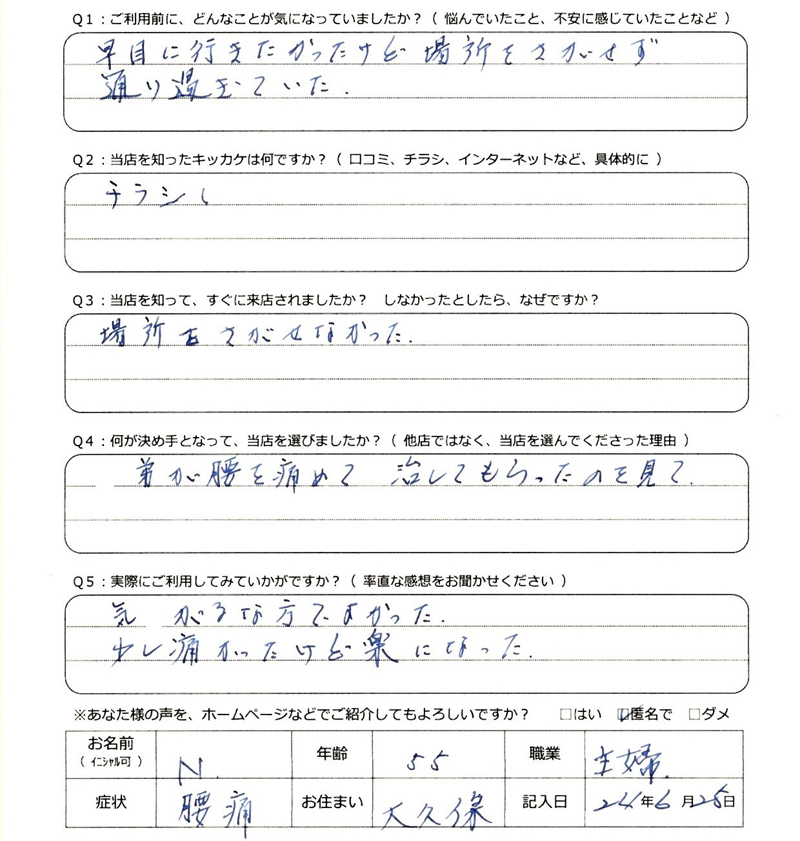 Q1：ご利用前に、どんなことが気になっていましたか？（ 悩んでいたこと、不安に感じていたことなど ）
早目に行きたかったけど場所をさがせず
通り過ぎていた.
Q2：当店を知ったキッカケは何ですか？（ 口コミ、チラシ、インターネットなど、具体的に ）
チラシ
Q3：当店を知って、すぐに来店されましたか？　しなかったとしたら、なぜですか？
場所をさがせなかった.
Q4：何が決め手となって、当店を選びましたか？（ 他店ではなく、当店を選んでくださった理由 ）
弟が腰を痛めて 治してもらったのを見て.
Q5：実際にご利用してみていかがですか？（ 率直な感想をお聞かせください ）
気 がるな方でよかった.
少し痛かったけど楽になった.
※あなた様の声を、ホームページなどでご紹介してもよろしいですか？　□はい　☑匿名で　□ダメ
お名前（ イニシャル可 ） N. 年齢 55 職業 主婦.
症状 腰痛 お住まい 大久保 記入日 24年6月25日